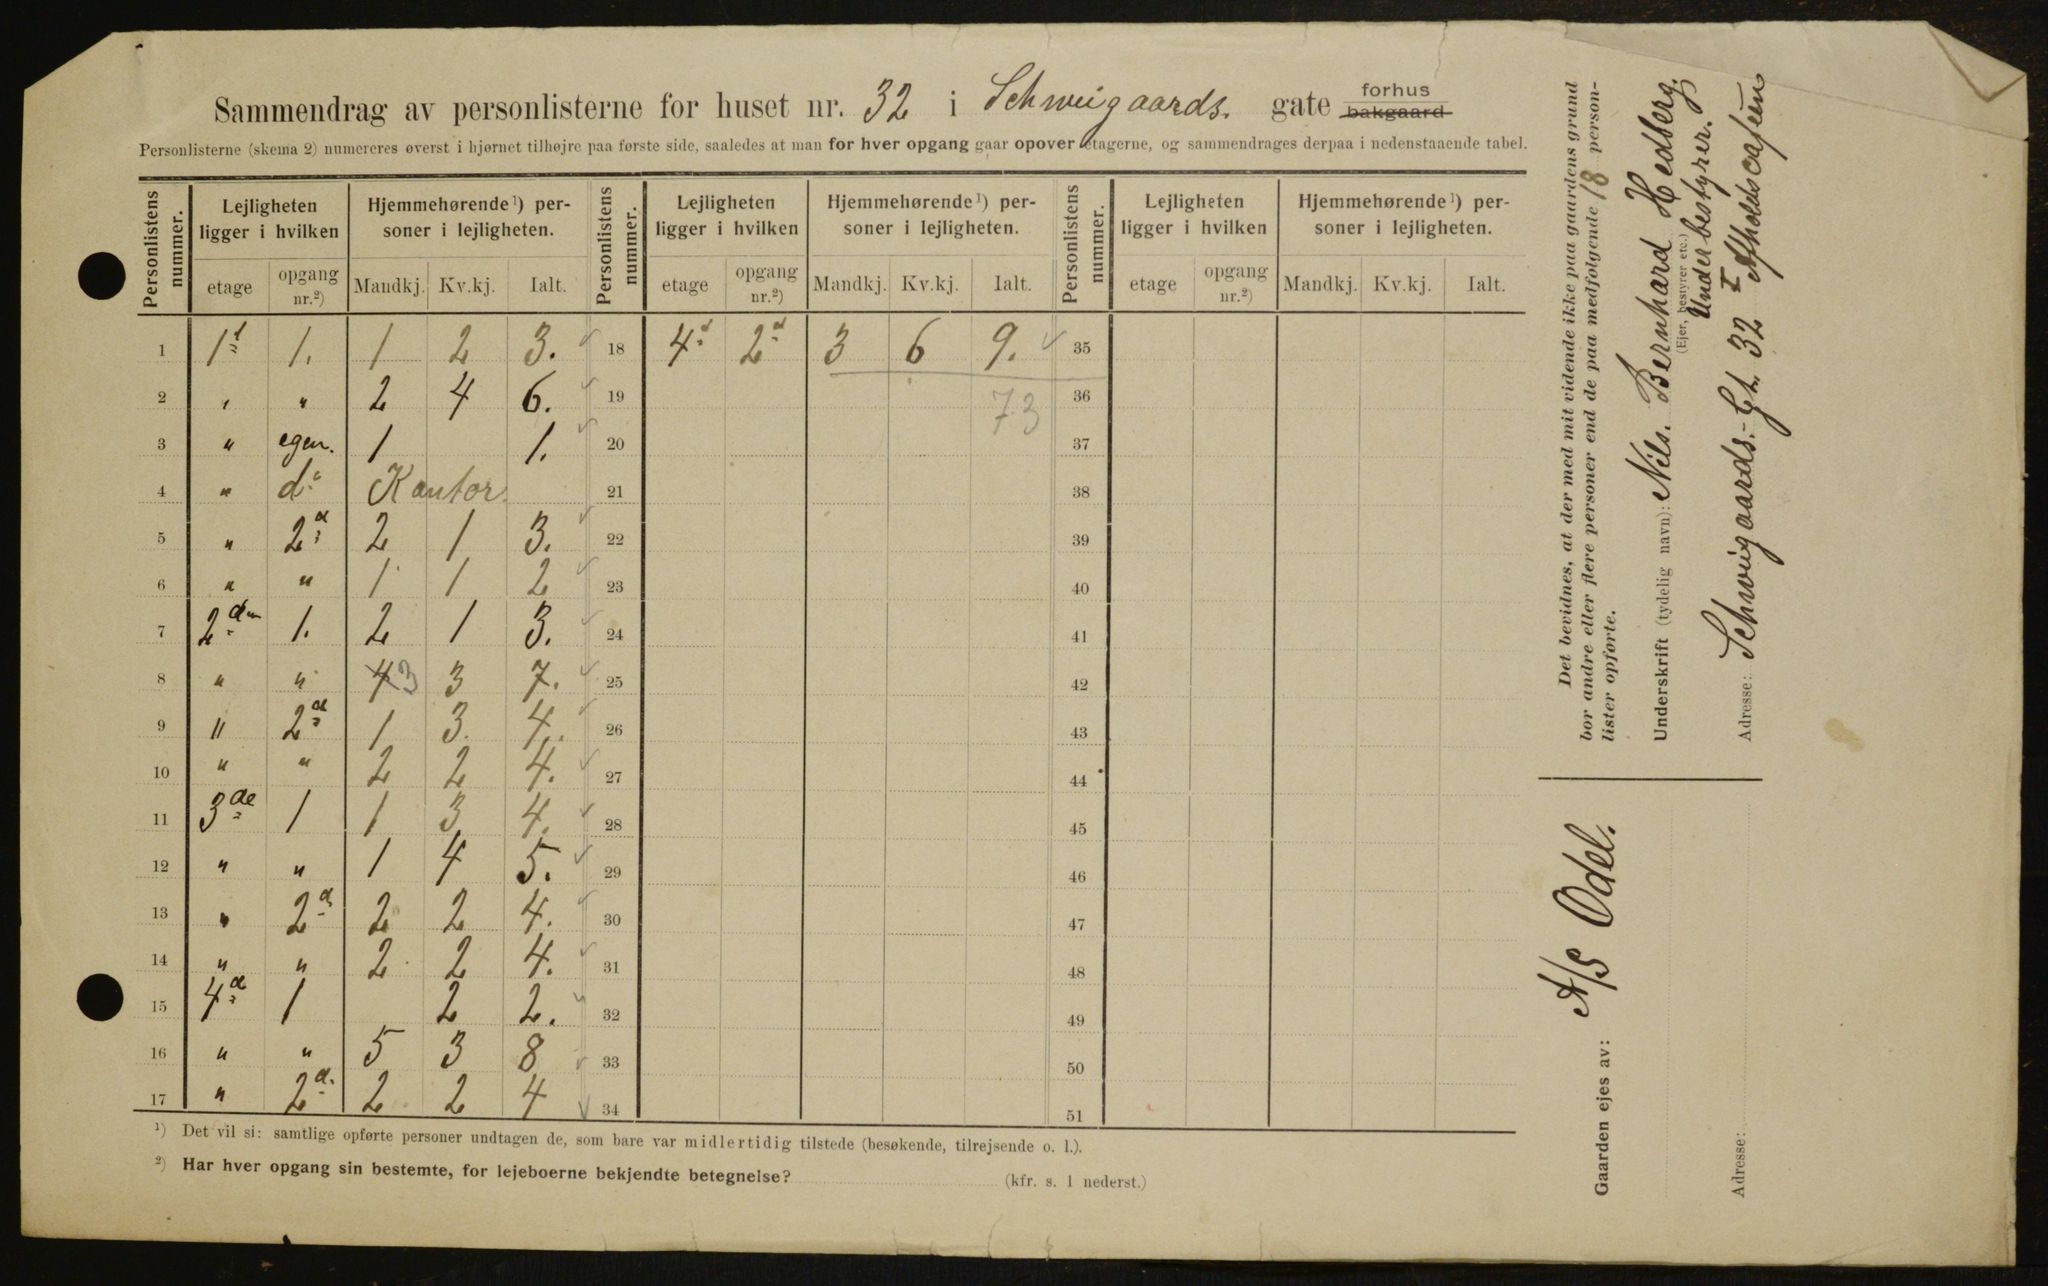 Sammendrag av personlisterne for huset nr. 32 i Schweigaards. gate forhus bakgaard
Personlisterne (skema 2) numereres øverst i hjørnet tilhøjre paa første side, saaledes at man for hver opgang gaar opover etagerne, og sammendrages derpaa i nedenstaaende tabel.
Personlistens nummer. Lejligheten ligger i hvilken Hjemmehørende¹) personer i lejligheten. Personlistens nummer. Lejligheten ligger i hvilken Hjemmehørende¹) personer i lejligheten. Personlistens nummer. Lejligheten ligger i hvilken Hjemmehørende¹) personer i lejligheten.
etage opgang nr.²) Mandkj. Kv.kj. Ialt. etage opgang nr.²) Mandkj. Kv.kj. Ialt. etage opgang nr.²) Mandkj. Kv.kj. Ialt.
1 1ˢᵗ 1. 1 2 3. 18 4ᵈ 2ᵈ 3 6 9. 35
2 " " 2 4 6. 19 73 36
3 " egen. 1 1. 20 37
4 " dᵒ Kontor. 21 38
5 " 2ᵈ 2 1 3. 22 39
6 " " 1 1 2 23 40
7 2den 1. 2 1 3. 24 41
8 " " 4 3 3 7. 25 42
9 " 2ᵈ 1 3. 4. 26 43
10 " " 2 2 4. 27 44
11 3de 1 1 3 4. 28 45
12 " " 1 4 5. 29 46
13 " 2ᵈ 2 2 4. 30 47
14 " " 2 2 4. 31 48
15 4ᵈ 1 2 2. 32 49
16 " " 5 3 8 33 50
17 " 2ᵈ. 2 2 4 34 51
¹) Det vil si: samtlige opførte personer undtagen de, som bare var midlertidig tilstede (besøkende, tilrejsende o. l.).
²) Har hver opgang sin bestemte, for lejeboerne bekjendte betegnelse? (kfr. s. 1 nederst.)
Det bevidnes, at der med mit vidende ikke paa gaardens grund
bor andre eller flere personer end de paa medfølgende 18 person-
lister opførte.
Underskrift (tydelig navn): Nils. Bernhard Hedberg.
(Ejer, bestyrer etc.)
Underbestyrer.
Adresse: Schweigaards.-Gt. 32 I Afholdscafeen
Gaarden ejes av: A/S Odel.
Adresse: